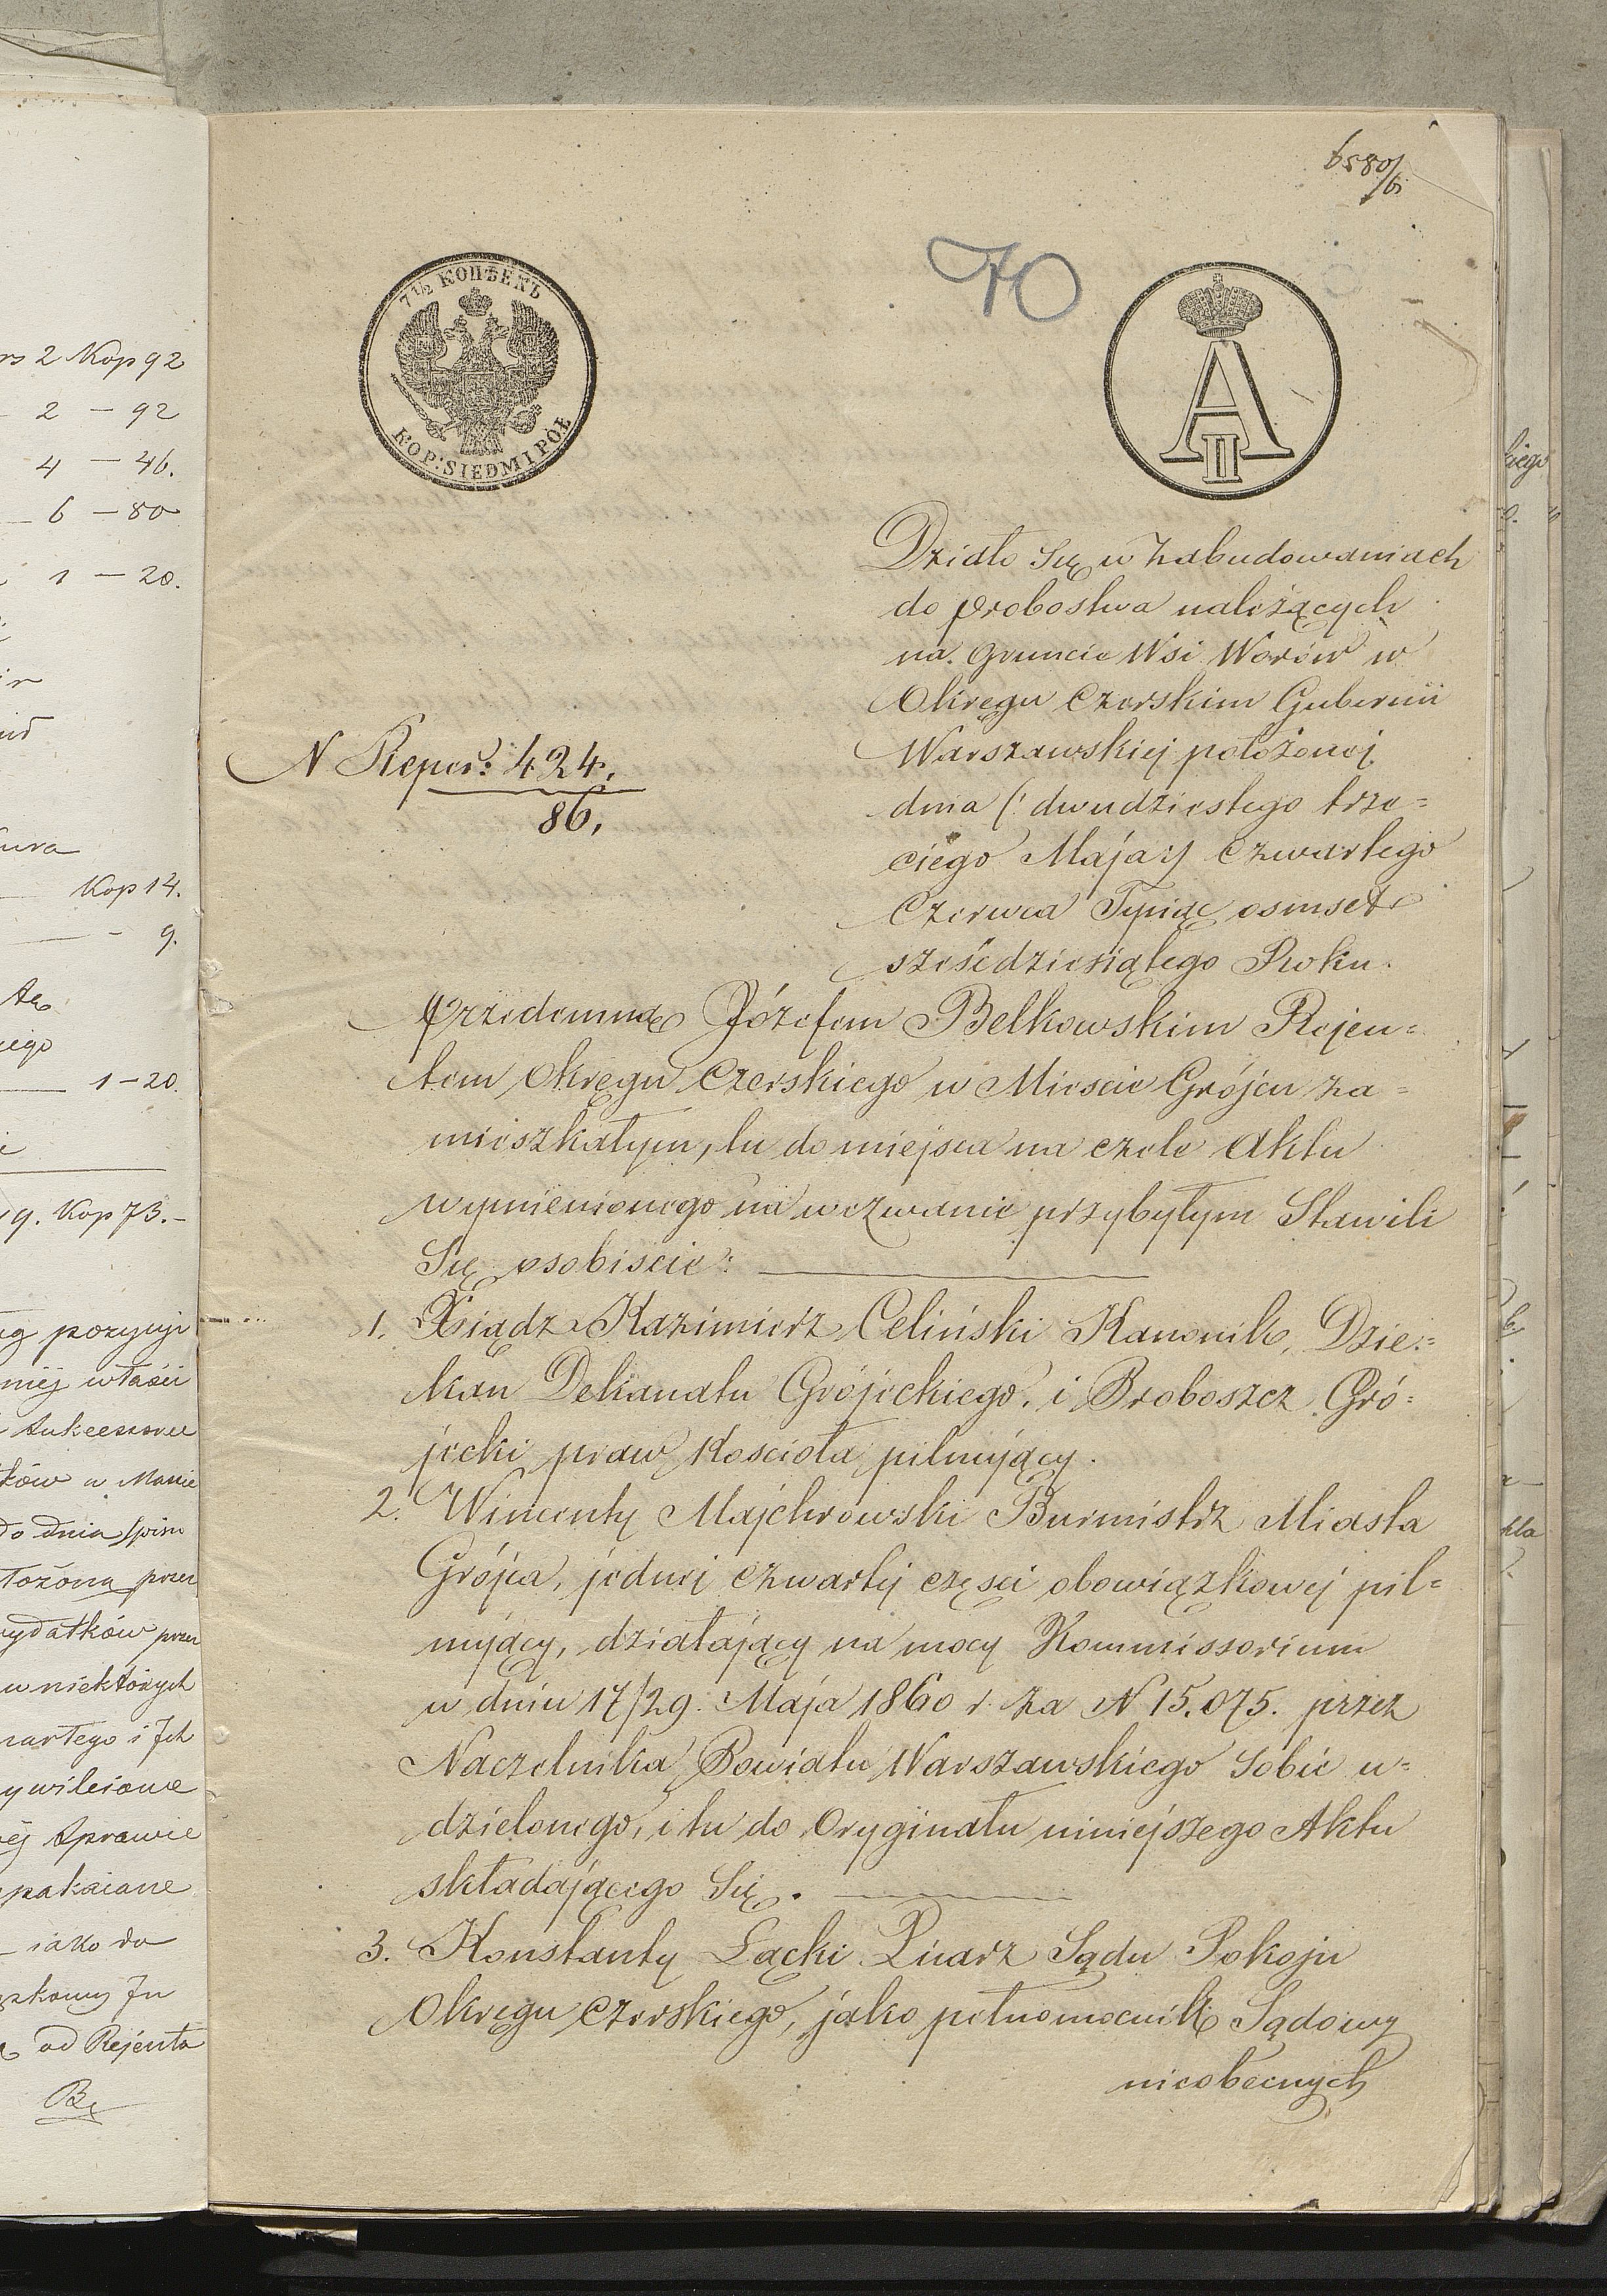 6580/6
70
7½ КОПѢЕКЪ
KOP: SIEDM I PÓŁ
A II
Działo Się w Zabudowaniach
do probostwa należących
na Gruncie Wsi Worów w
Okręgu Czerskim Gubernii
Warszawskiej położonej
dnia (: dwudziestego trze=
ciego Maja :) Czwartego
Czerwca Tysiąc osmset
sześćdziesiątego Roku.
N Reper: 424.
86.
Przedemną Józefem Belkowskim Rejen=
tem Okręgu Czerskiego w Mieście Grójcu za=
mieszkałym, tu do miejsca na czele Aktu
wymienionego na wezwanie przybyłym Stawili
Się osobiście:
1. Xsiądz Kazimierz Celiński Kanonik, Dzie=
kan Dekanatu Grójeckiego, i Proboszcz Gró=
jecki praw Kościoła pilnujący.
2. Wincenty Majchrowski Burmistrz Miasta
Grójca, jednej czwartej części obowiązkowej pil=
nujący, działający na mocy Kommissorium
w dniu 17/29. Maja 1860 r. za N 15.075. przez
Naczelnika Powiatu Warszawskiego Sobie u=
dzielonego, i tu do Oryginału niniejszego Aktu
składającego Się.
3. Konstanty Łącki Pisarz Sądu Pokoju
Okręgu Czerskiego, jako pełnomocnik Sądowy
nieobecnych
rs 2 Kop 92
2 — 92
4 — 46.
6 — 80
1 — 20.
Kop 14.
9.
1 — 20.
9. Kop 73.—
pozycyi
właści
Sukcessorów
do dnia
przez
wydatków przez
w niektórych
i Ich
Sprawie
jako do
od Rejenta